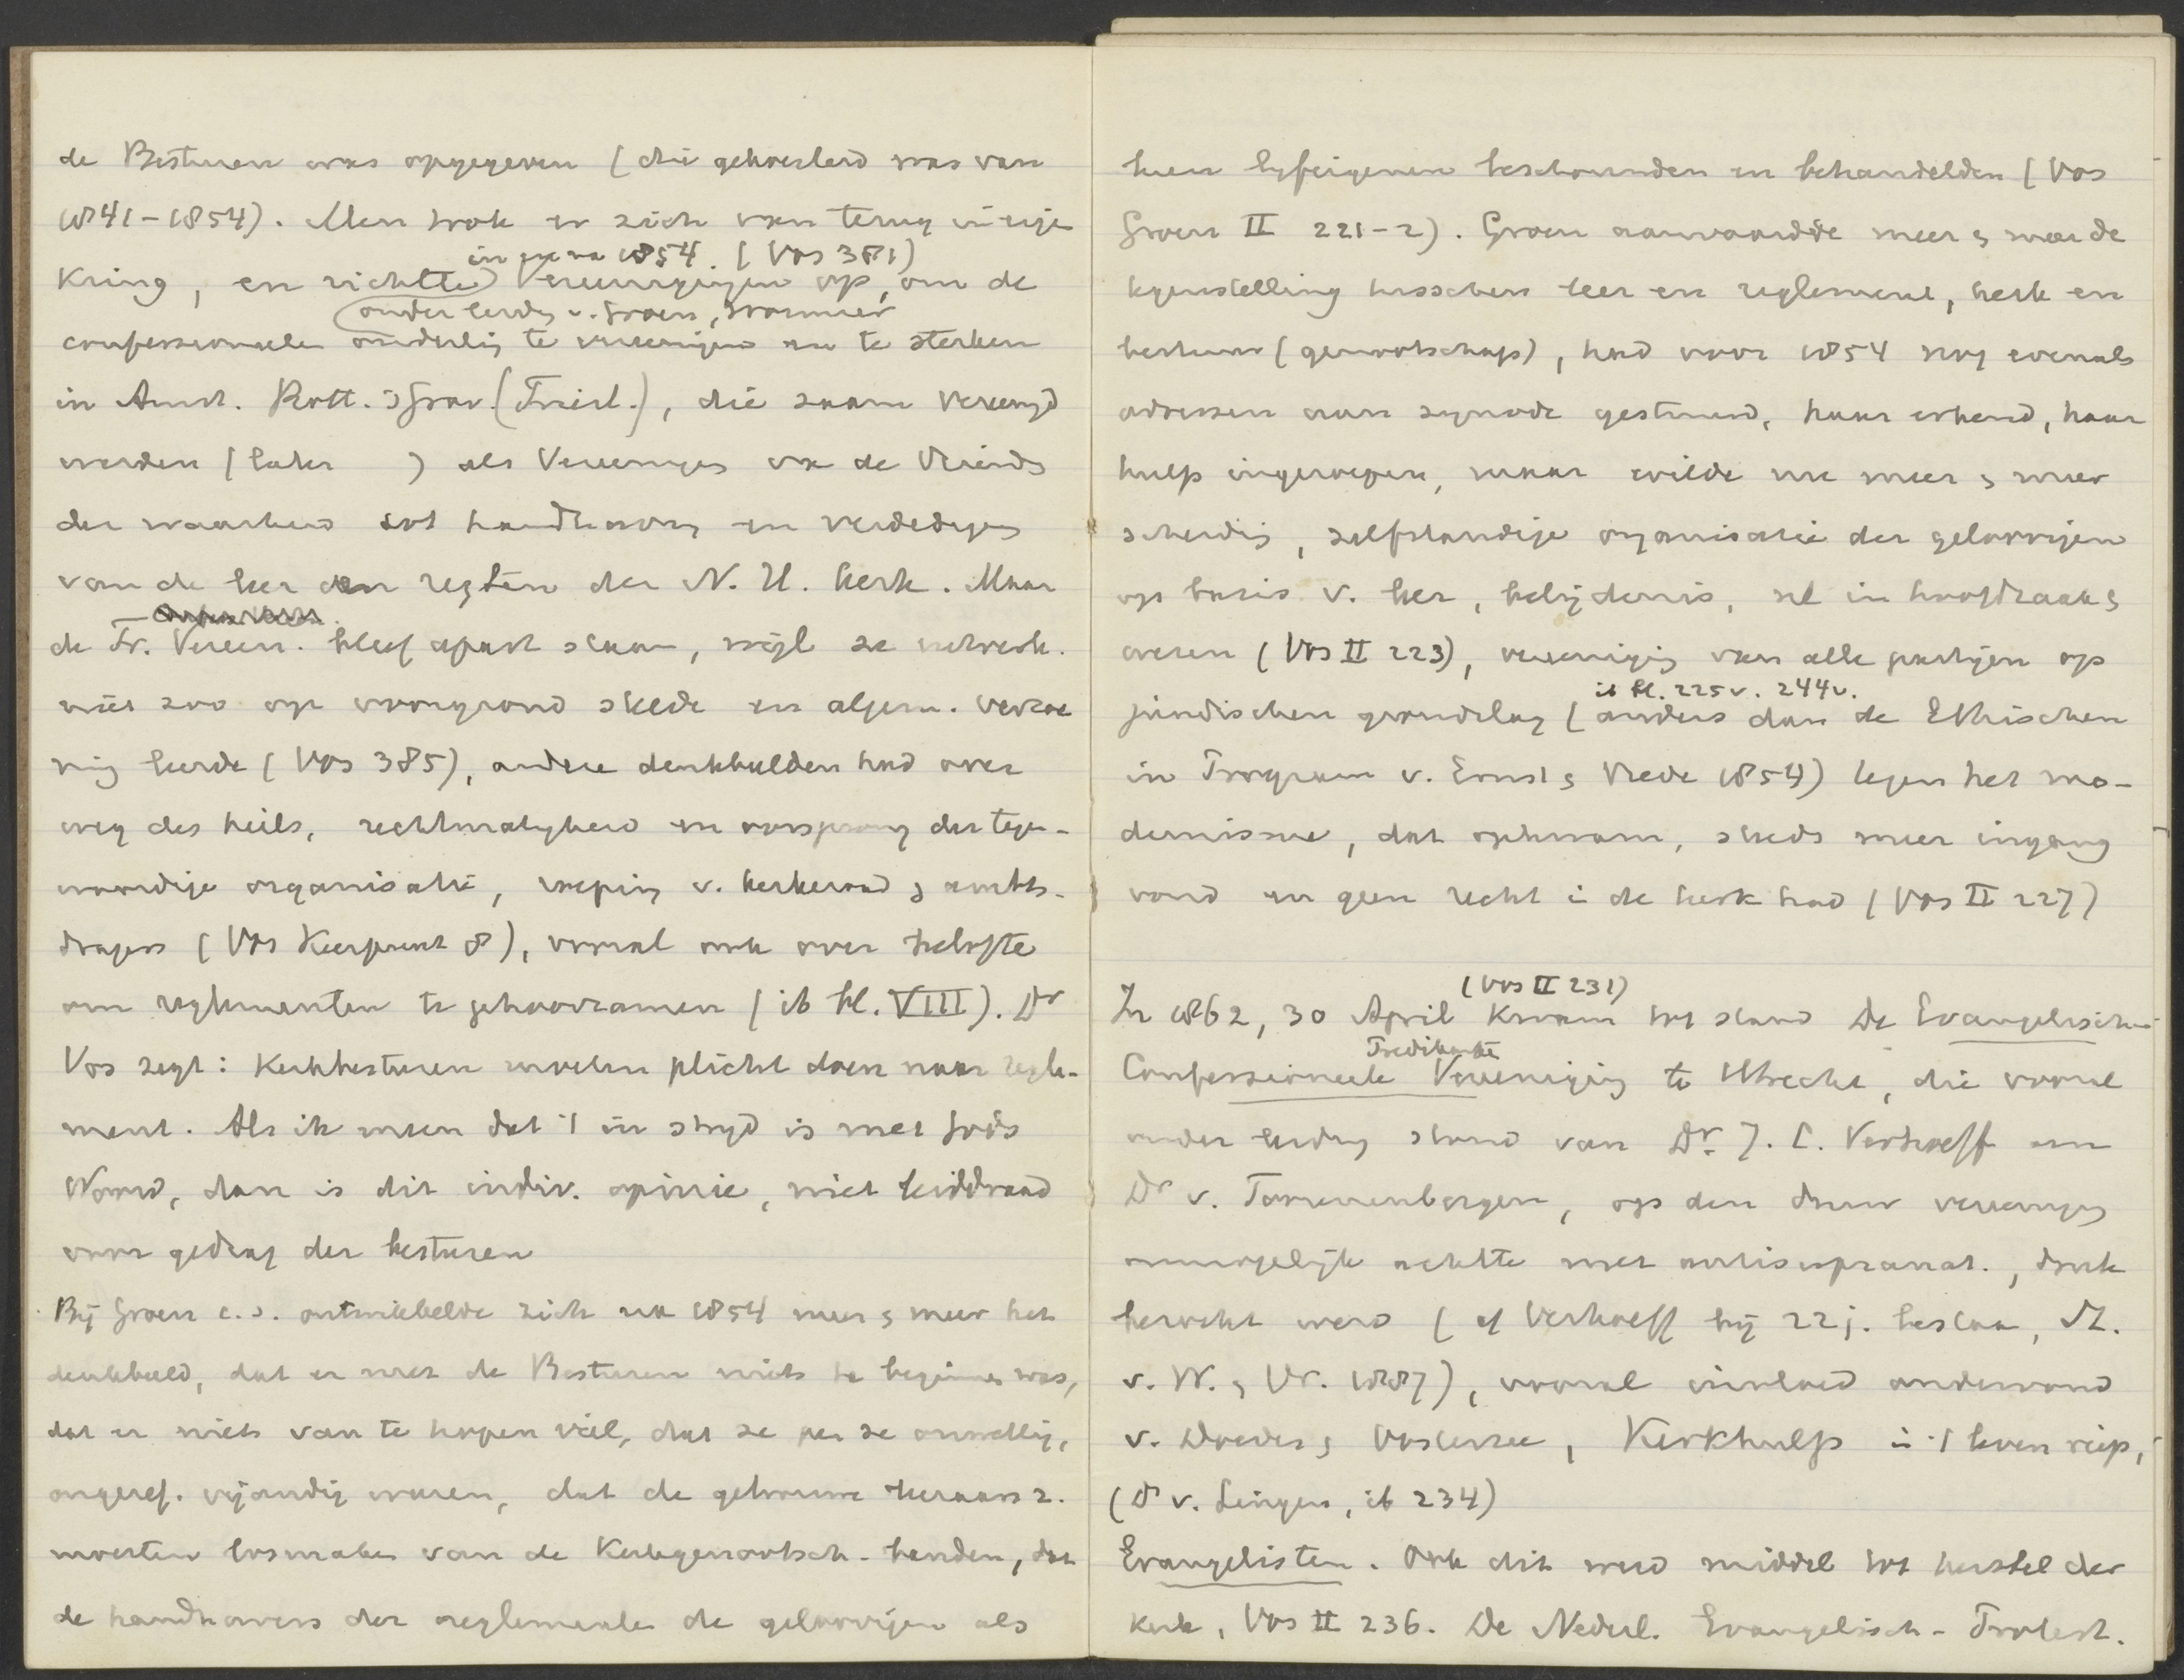 de Besturen was opgegeven (die gekoesterd was van
1841-1854). Men trok er zich van terug in eigen
in en na 1854. (Vos 381)
Kring, en richtte Vereenigingen op, om de
onder leidg v. Groen, Wormser
confessioneelen onderling te vereenigen en te sterken
in Amst. Rott. 's Grav. (Friesl.), die saam vereenigd
werden (later ) als Vereeniging van de Vriendn
der waarheid tot handhaving en verdediging
van de leer en regten der N. H. Kerk. Maar
de Fr. Vereen. bleef apart staan, wijl ze
niet zoo op voorgrond stelde en algem. verzoe
ning leerde (Vos 385), andere denkbeelden had over
weg des heils, rechtmatigheid en oorsprong der tegen-
woordige organisatie, roeping v. kerkeraad & ambts-
dragers (Vos Keerpunt 8), vooral ook over belofte
om reglementen te gehoorzamen (ib bl. VIII). Dr
Vos zegt: Kerkbesturen moeten plicht doen naar regle-
ment. Als ik meen dat 't in strijd is met Gods
Woord, dan is dit indiv. opinie, niet leiddraad
voor gedrag der besturen
Bij Groen c.s. ontwikkelde zich na 1854 meer & meer het
denkbeeld, dat er met de Besturen niets te beginnen was,
dat er niets van te hopen viel, dat ze per se onwettig,
ongeref. vijandig waren, dat de getrouwe leeraars z.
moesten losmaken van de Kerkgenootsch. banden, dat
de handhavers der reglementen de geloovigen als
hun lijfeigenen beschouwden en behandelden (Vos
Groen II 221-2). Groen aanvaardde meer & meer de
tegenstelling tusschen leer en reglement, kerk en
bestuur (genootschap), had voor 1854 nog evenals
adressen aan synode gestuurd, haar erkend, haar
hulp ingeroepen, maar wilde nu meer & meer
scheiding, zelfstandige organisatie der geloovigen
op basis v. leer, belijdenis, nl in hoofdzaak &
wezen (Vos II 223), vereeniging van alle partijen op
ib bl. 225v. 244v.
juridischen grondslag (anders dan de Ethischen
in Program v. Ernst & Vrede 1854) tegen het mo-
dernisme, dat opkwam, steeds meer ingang
vond en geen recht in de kerk had (Vos II 227)
(Vos II 231)
In 1862, 30 April Kwam tot stand De Evangelische
Predikante
Confessioneele Vereeniging te Utrecht, die vooral
onder leiding stond van Dr. J. C. Verhoeff en
Dr v. Toorenenbergen, op den duur vereeniging
onmogelijk achtte met antisupranat., druk
bezocht werd (cf Verhoeff bij 22 j. bestaan, St.
v. W. & Vr. 1887), vooral invloed ondervond
v. Doedes & Oosterzee, Kerkhulp in 't leven riep,
(Dr v. Lingen, ib 234)
Evangelisten. Ook dit werd middel tot herstel der
Kerk, Vos II 236. De Nederl. Evangelisch-Protest.